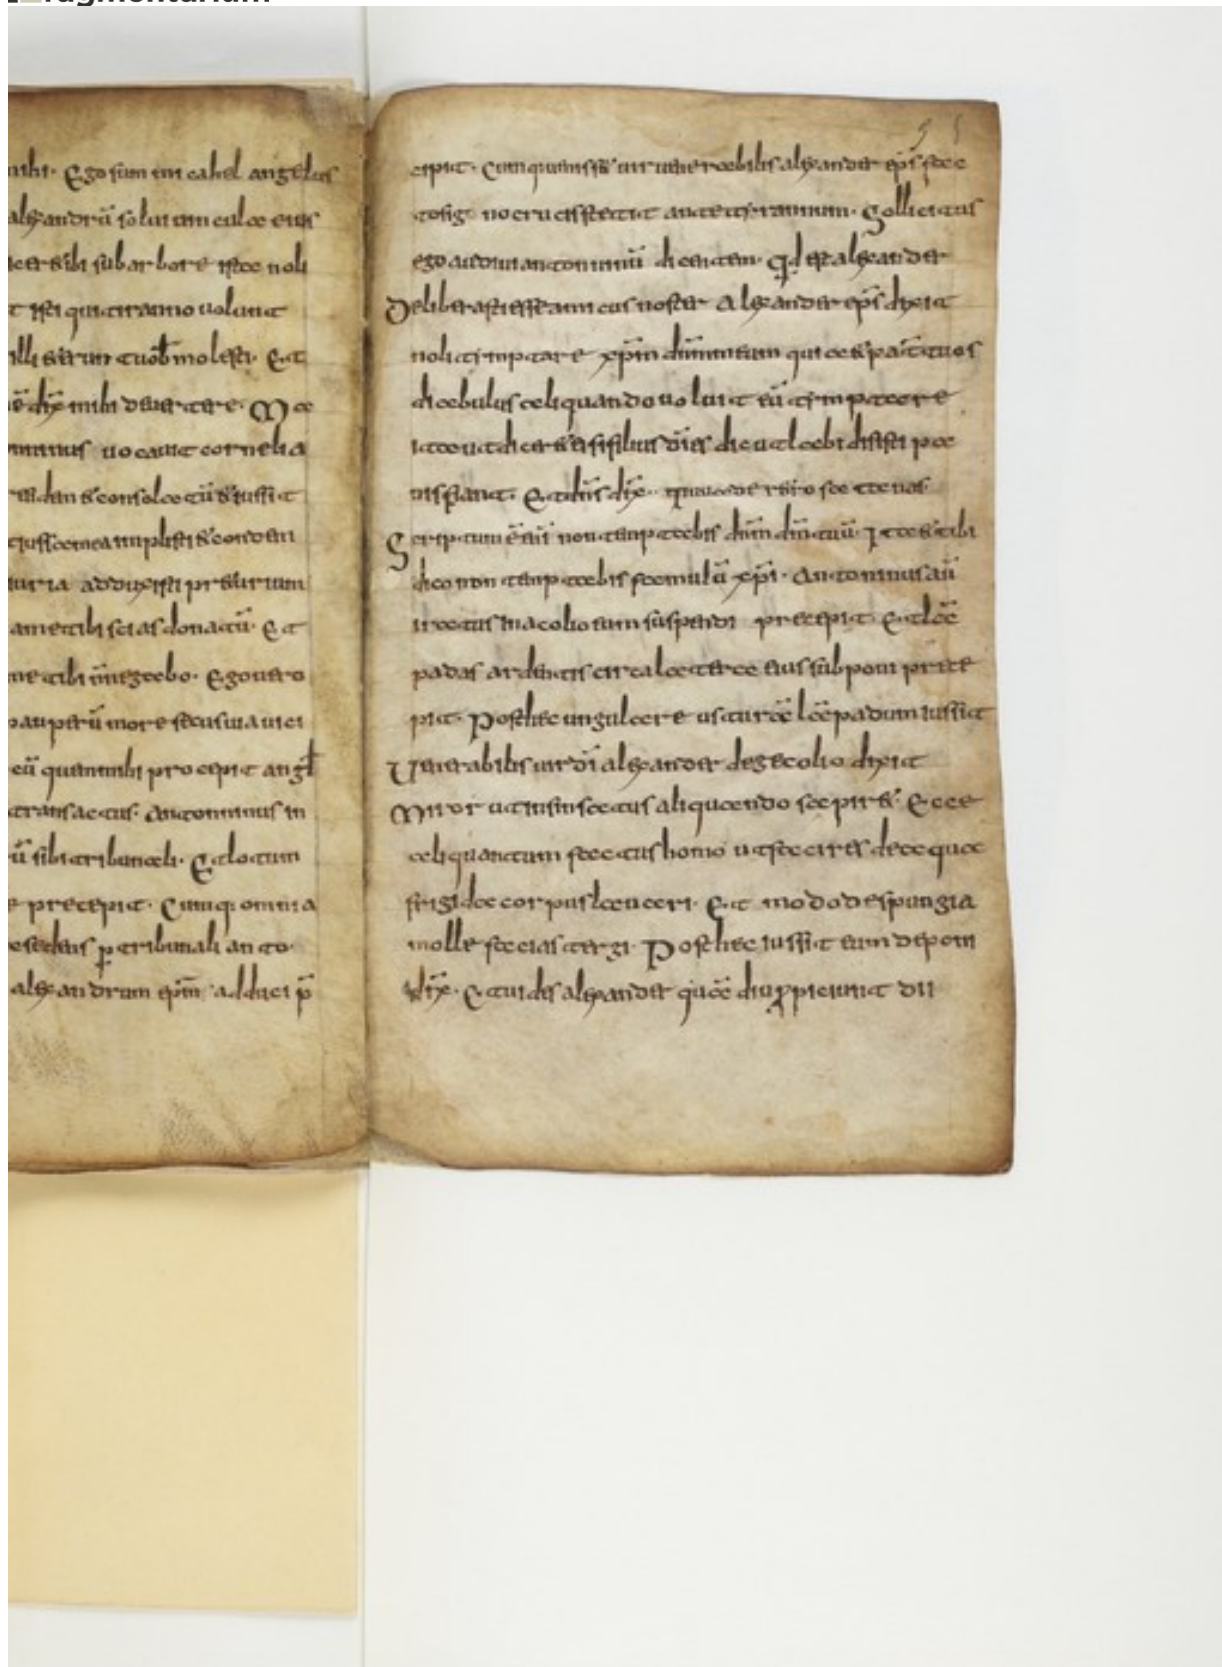 ragmentarium
mihi. Ego sum eni cahel angelus
alexandrū soluit uincula eius
sub arbore ista noli
isti qui tiranno uolunt
illi uobis molesti. Et
dix̄ mihi deuertere. Ma
uocauit cornelia
& iussit
implesti &
adduxisti pr&urium
ame tibi scias donatū. Et
me tibi negabo. Ego uero
pauperū more secus uia uici
cū quam mihi procepit angl
transactus. Antoninus in
ū sibi tribunali. Et lotum
e precepit. Cumq; omnia
sedens p̱ tribunali anto
alexandrum ep̄m adduci p̄
51
cipit. Cumquamiss& uir uenerabilis alexander ep̄s facta
tosig no crucis stetit ante tyrannum. Sollicitus
ego audiui antoninū dicentem. Qd̄ est alexander
Deliberasti esse amicus noster Alexander ep̄s dixit
noli timptare xp̄m dn̄m meum qui a&pat tuos
diabulus aliquando uoluit eū timptare
ita ut dicer& ei si filius dī es dic ut labidis isti pa
nis fiant. Et dn̄s dix̄. uade r&ro satanas
Scriptum ē eni non temptabis dn̄m dn̄ tuū. Ita & tibi
dico non temptabis famulū xp̄i. Antoninus aū
iratus in acolio eum suspendi precepit. Et lā
padas ardentis circa latera eius subponi prece
pit. Post hec ungulare usturā lāpadum iussit
Venerabilis uir dī alexander de gecolio dixit
Miror ut insinsatus aliquando sapir&. Ecce
aliquantum factus homo ut facires de aqua
frigida corpus lauari. Et modo de spungia
molle facias tergi. Post hec iussit eum deponi
dix̄. Et uides alexander quā diu p̱piciunt dii